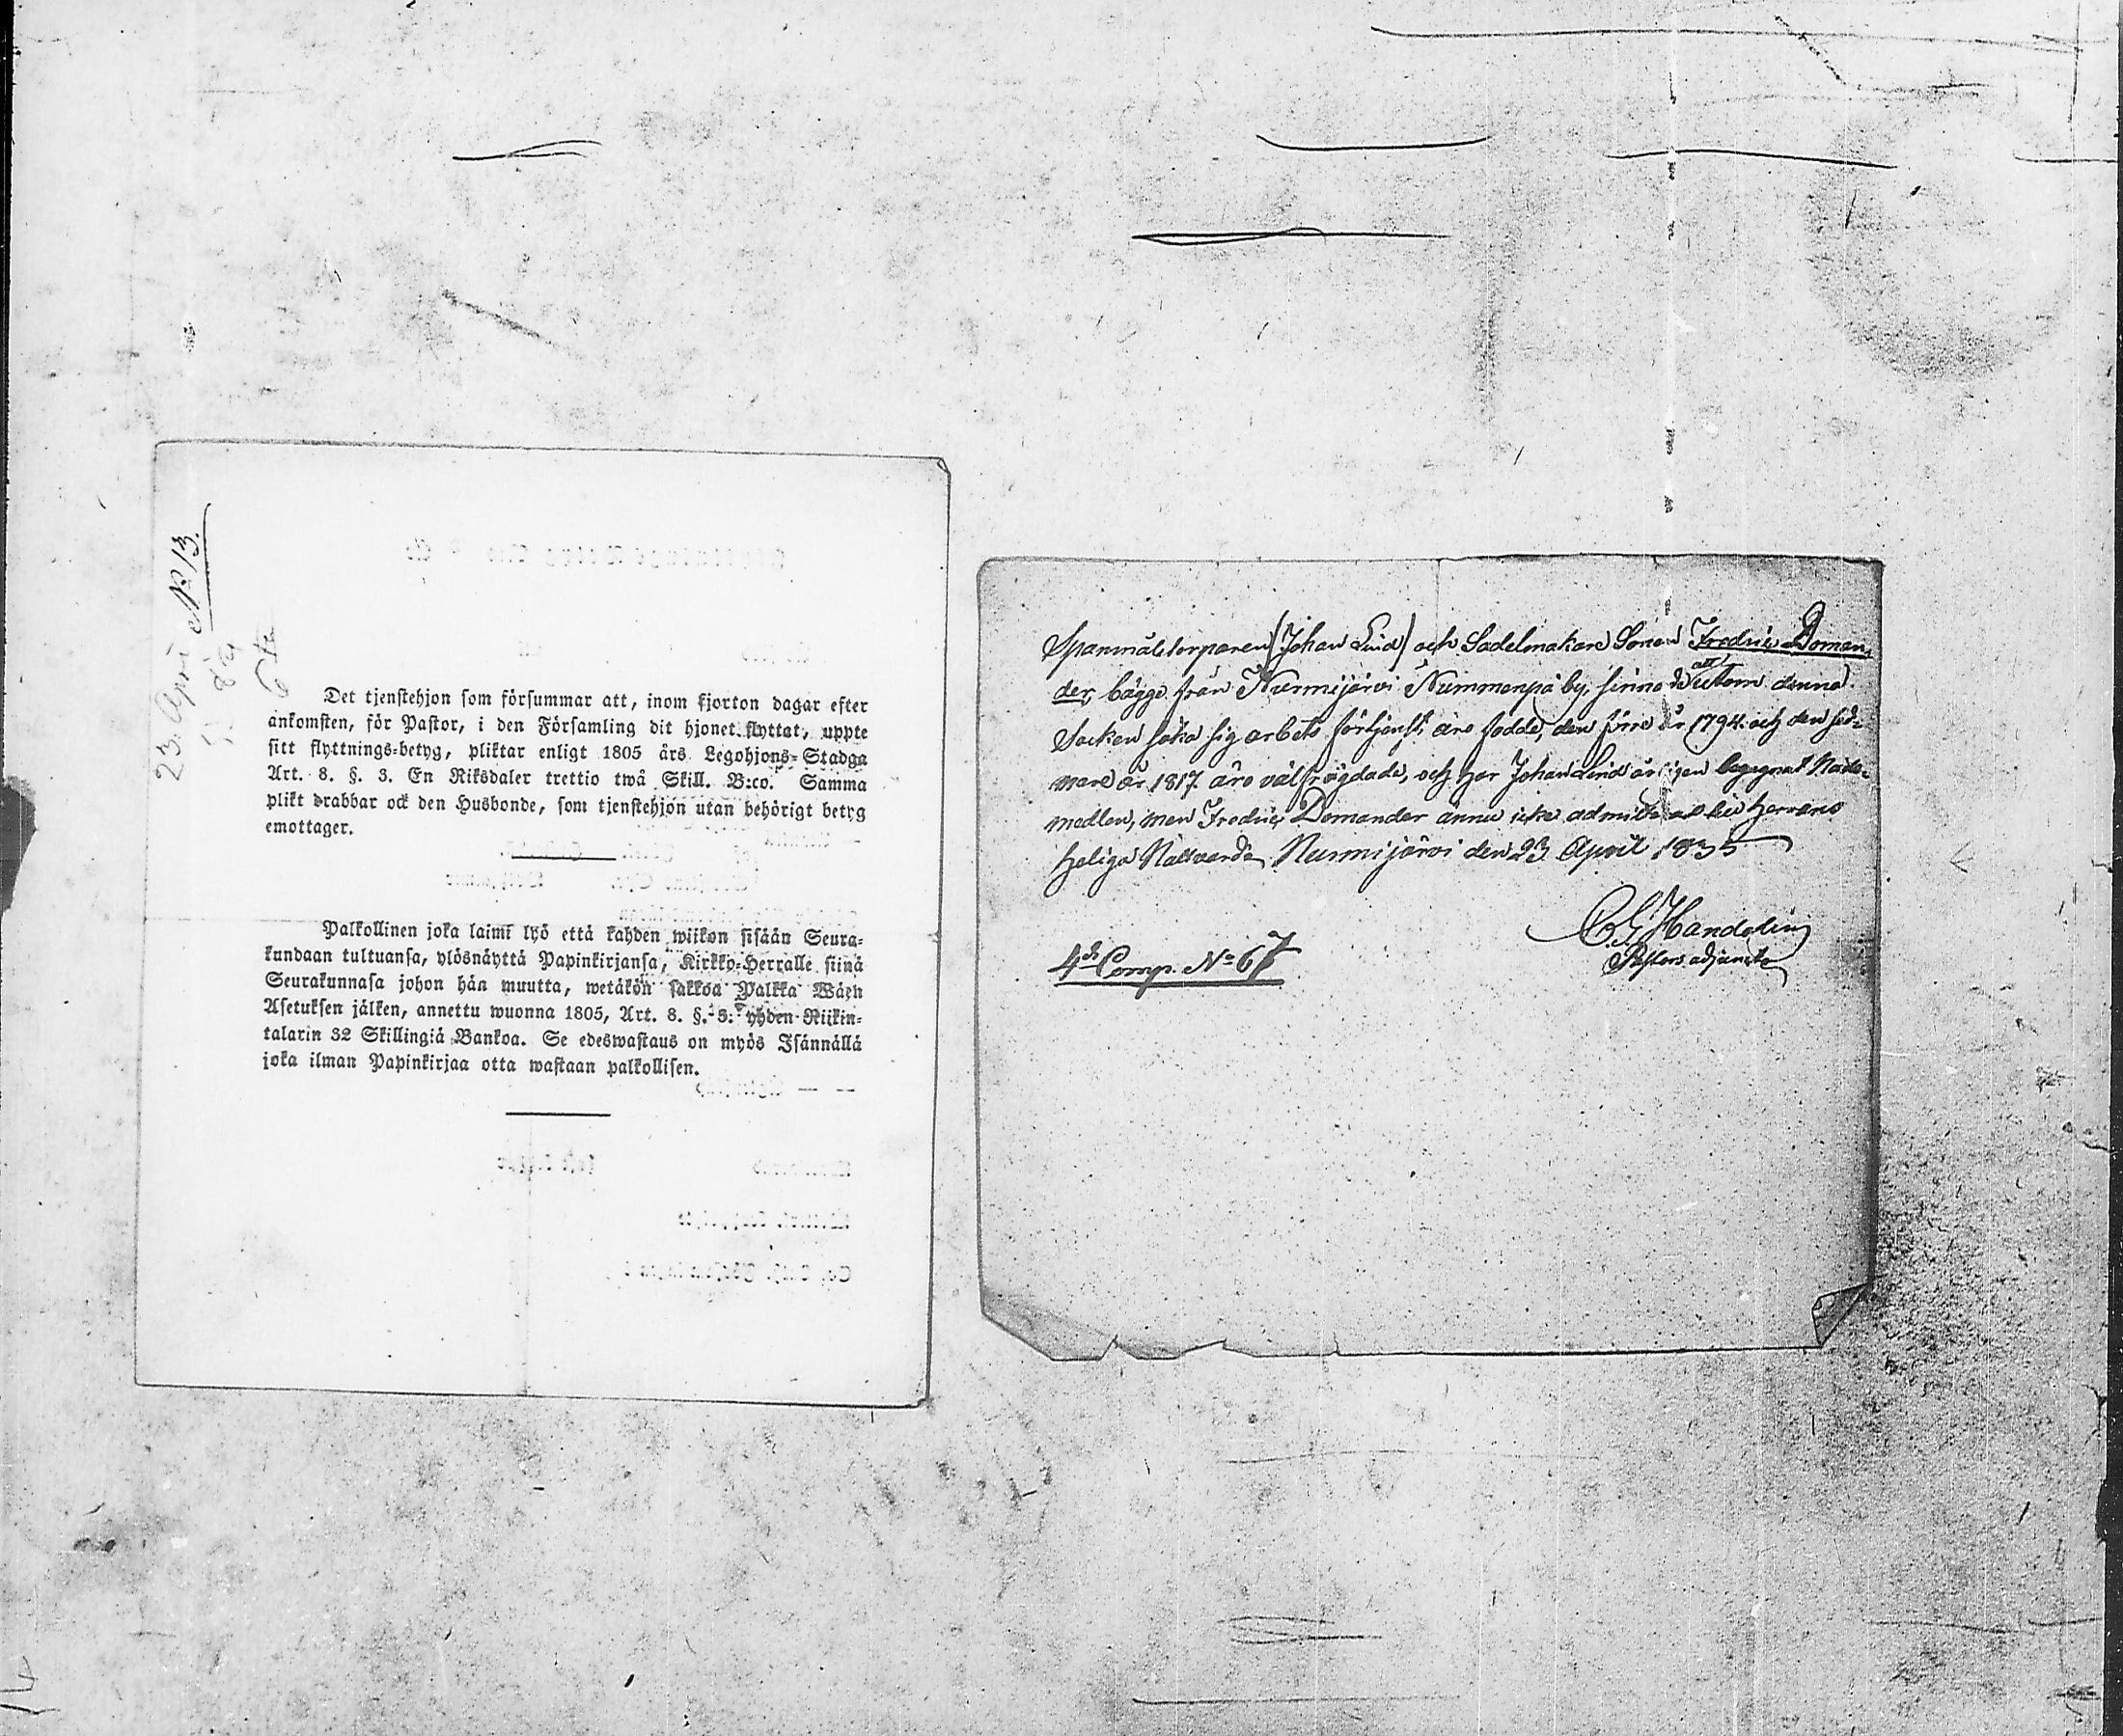 23. April N:o 13.
Det tjenstehjon som försummar att, inom fjorton dagar efter
ankomsten, för Pastor, i den Församling dit hjonet flyttat, uppte
sitt flyttnings-betyg, pliktar enligt 1805 års Legohjons-Stadga
Art. 8. §. 3. En Riksdaler trettio twå Skill. B:co. Samma
plikt drabbar ock den Husbonde, som tjenstehjon utan behörigt betyg
emottager.
Palkollinen joka laimi lyö että kahden wiikon sisään Seura-
kundaan tultuansa, ylösnäyttä Papinkirjansa, Kirkko-Herralle siinä
Seurakunnasa johon hän muutta, wetäkön sakkoa Palkka Wäen
Asetuksen jälken, annettu wuonna 1805, Art. 8. §. 3: yhden Riikin-
talarin 32 Skillingiä Bankoa. Se edeswastaus on myös Isännällä
joka ilman Papinkirjaa otta wastaan palkollisen.
Spanmålstorparen (Johan Lind) och Sadelmakare Sonen Fredric Doman-
der, bägge från Nurmijärvi Nummenpä by, sinnade att utom denna
Socken söka sig arbets förtjenst, äro födde, den förre år 1794. och den sed-
nare år 1817. äro välfrägdade, och har Johan Lind årligen begagnat Nåde-
medlen, men Fredric Domander ännu icke admitterad till Herrans
Heliga Nattvard. Nurmijärvi den 23 April 1835
C. G. Handolin
Pastors adjunct
4de Comp. No 67